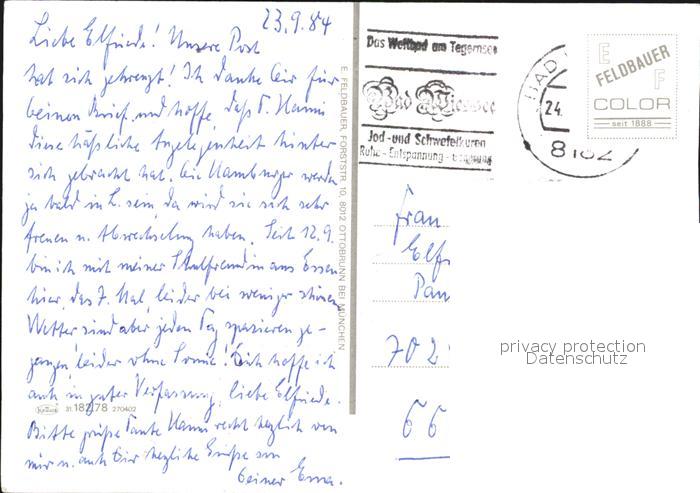 23.9.84
Liebe Elfriede! Unsere Post
hat sich gekreuzt! Ich danke Dir für
Deinen Brief und hoffe, daß T. Hanni
diese häßliche Angelegenheit hinter
sich gebracht hat. Die Hamburger werden
ja bald in L. sein, da wird sie sich sehr
freuen u. Abwechselung haben. Seit 12.9.
bin ich mit meiner Schulfreundin aus Essen
hier, das 7. Mal, leider bei weniger schönem
Wetter sind aber jeden Tag spazieren ge-
gangen, leider ohne Sonne! Dich hoffe ich
auch in guter Verfassung, liebe Elfriede.
Bitte grüße Tante Hanni recht herzlich von
mir u. auch Dir herzliche Grüße von
Deiner Erna.
31.182.78 270402
E. FELDBAUER, FORSTSTR. 10, 8012 OTTOBRUNN BEI MÜNCHEN
Das Weltbad am Tegernsee
Bad Wiessee
Jod- und Schwefelkuren
Ruhe - Entspannung -
BAD
24.
8182
E
FELDBAUER
F
COLOR
seit 1888
Frau
Elf
Pau
702
66
privacy protection
Datenschutz